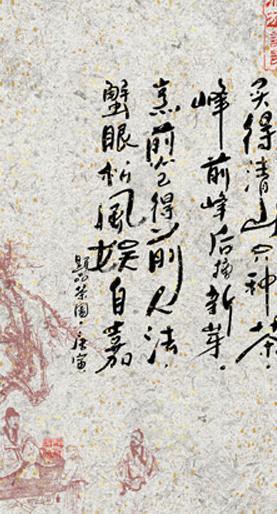 买得清山只种茶
峰前峰后摘新芽.
烹煎已得前人法.
蟹眼松风娱自嘉
题品茶图·唐寅